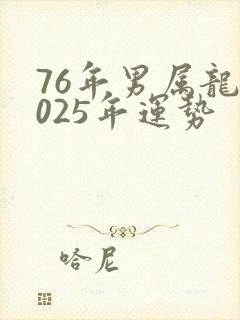 76年男属龍
025年運势
哈尼